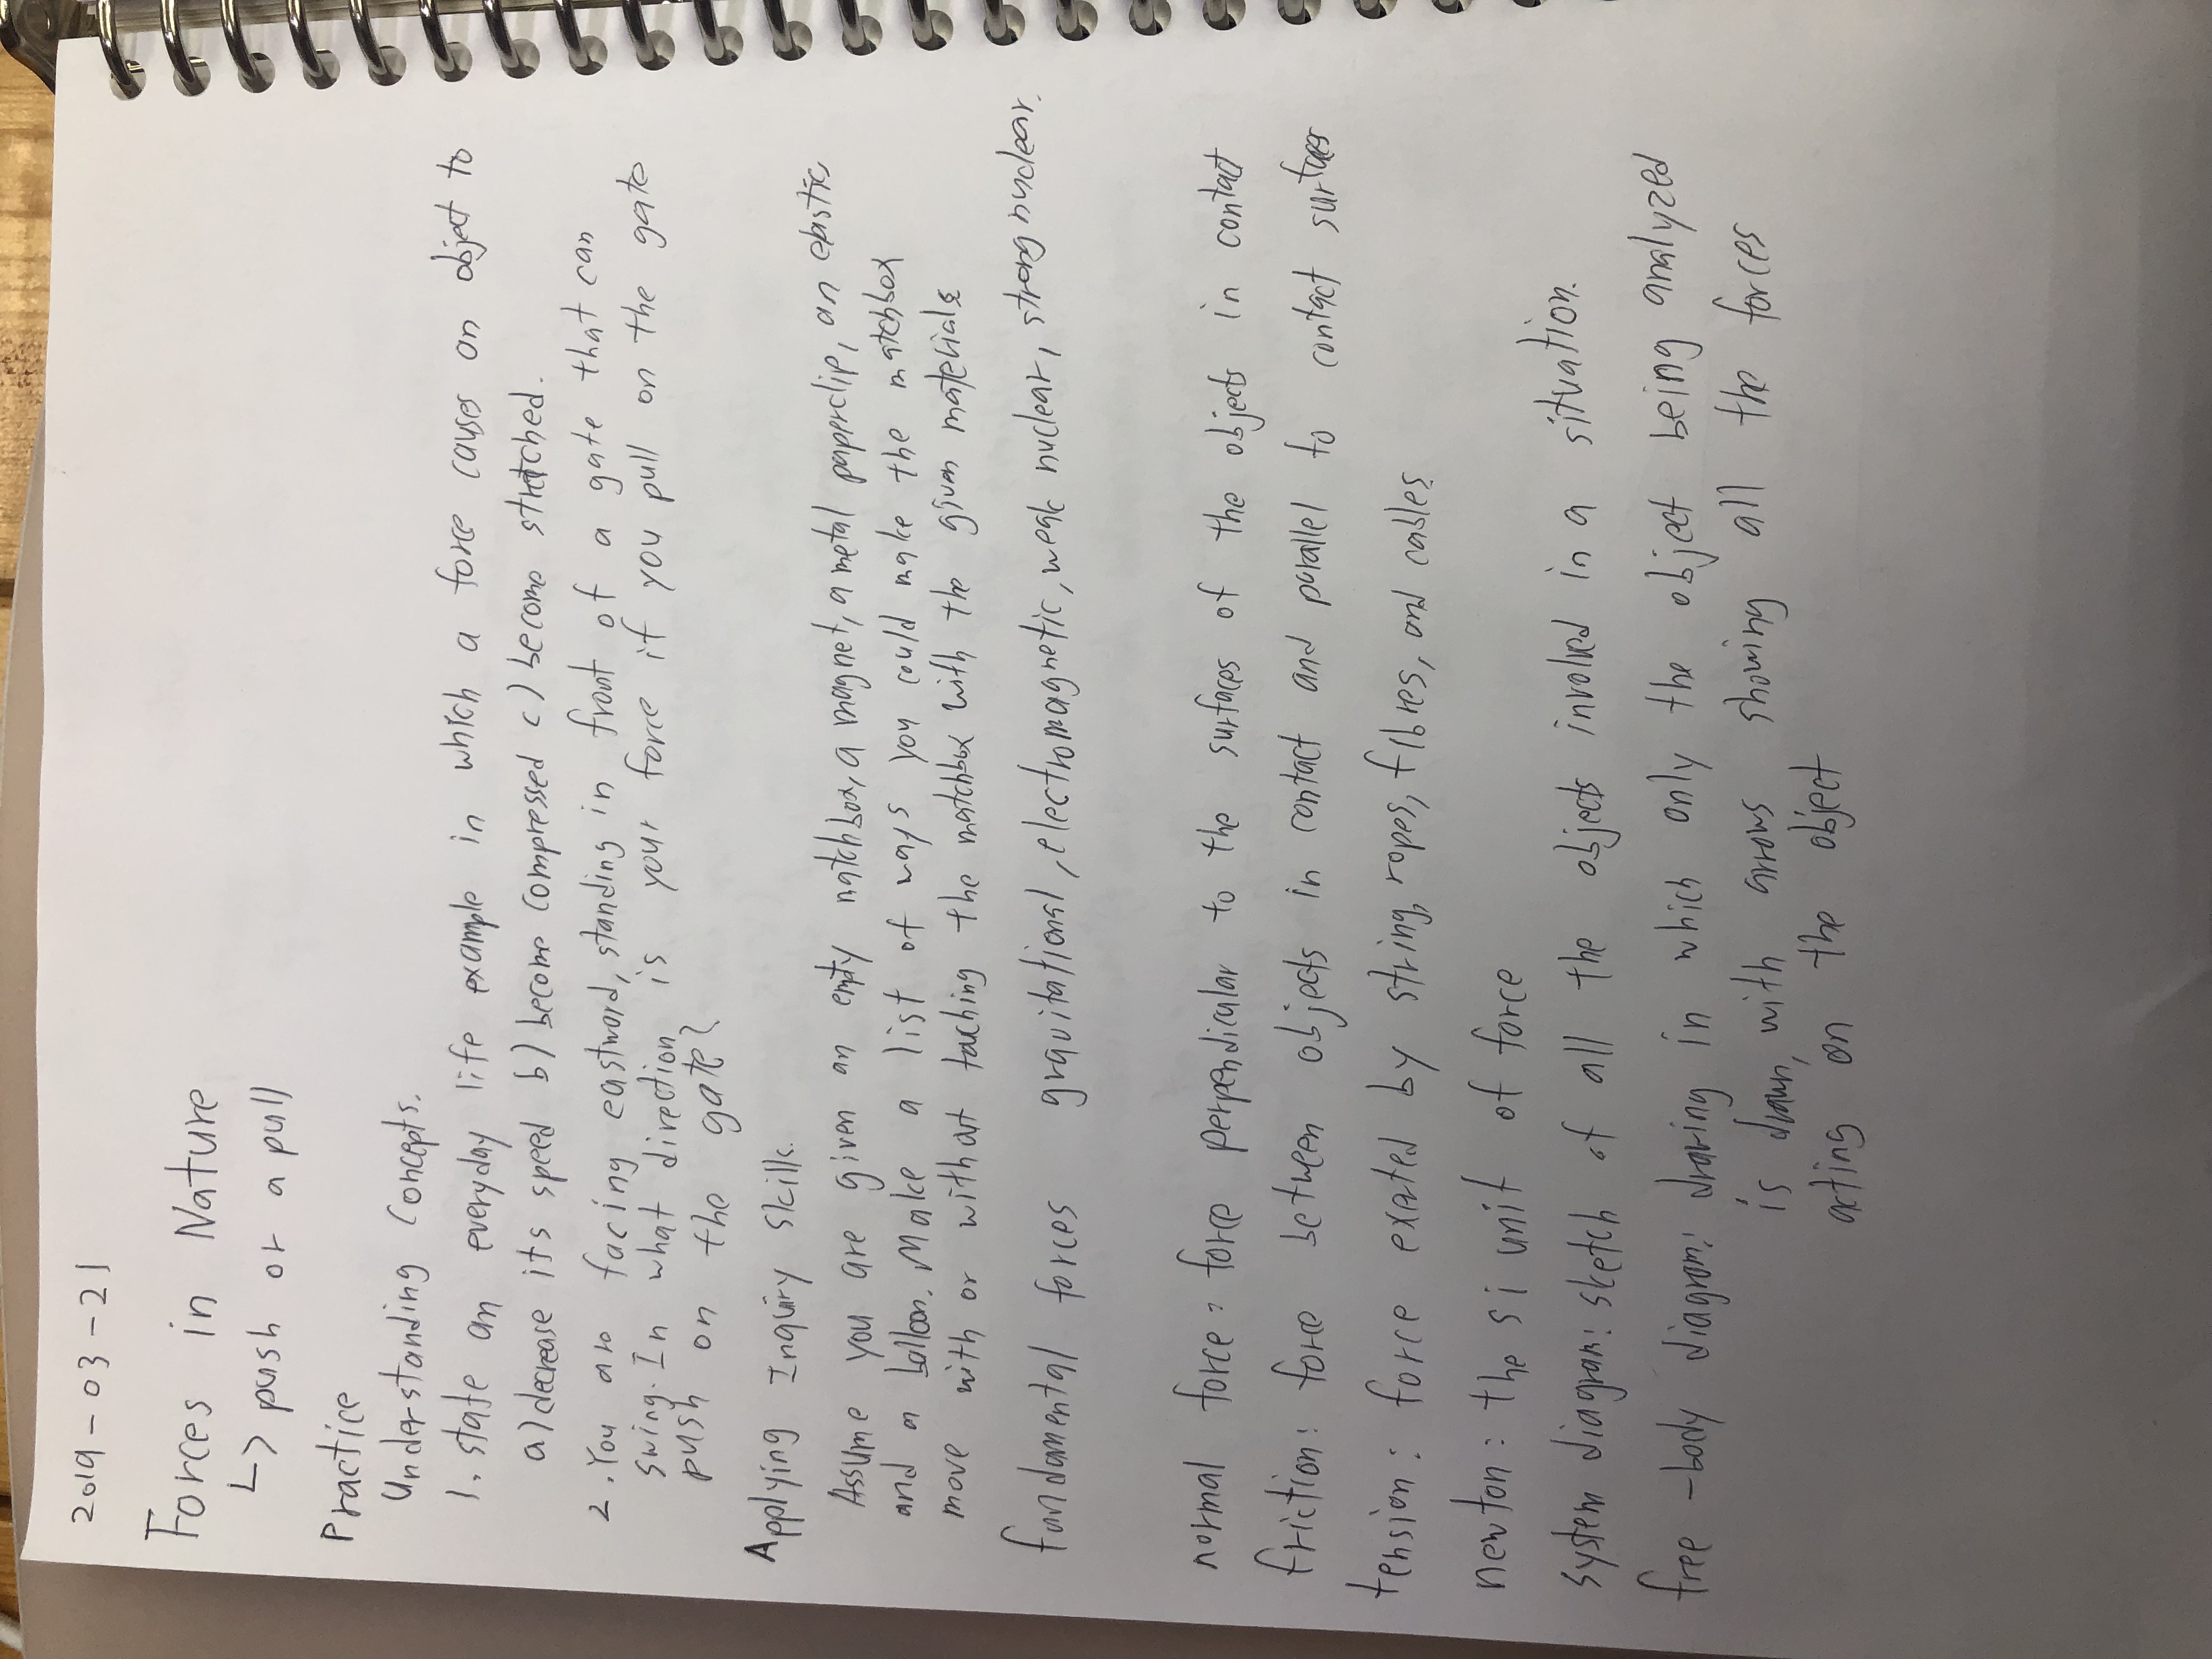 2019-03-21
Forces in Nature
↳ push or a pull
Practice
Understanding Concepts.
1. state an everyday life example in which a force causes an object to
a) decrease its speed b) become compressed c) become stretched.
2. You are facing eastward, standing in front of a gate that can
swing. In what direction is your force if you pull on the gate
push on the gate?
Applying Inquiry skills.
Assume you are given an empty matchbox, a magnet, a metal paperclip, an elastic
and a balloon. Make a list of ways you could make the matchbox
move with or without touching the matchbox with the given materials
fundamental forces gravitational, electromagnetic, weak nuclear, strong nuclear.
normal force: force perpendicular to the surfaces of the objects in contact
friction: force between objects in contact and parallel to contact surfaces
tension: force exerted by string, ropes, fibres, and cables
newton: the si unit of force
system diagram: sketch of all the objects involved in a situation.
free-body diagram: drawing in which only the object being analyzed
is drawn, with arrows showing all the forces
acting on the object